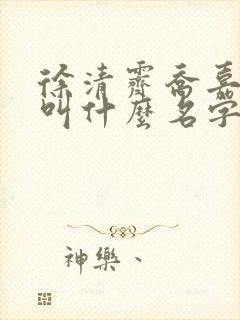 徐清霽喬嘉
叫什麼名字
神樂、